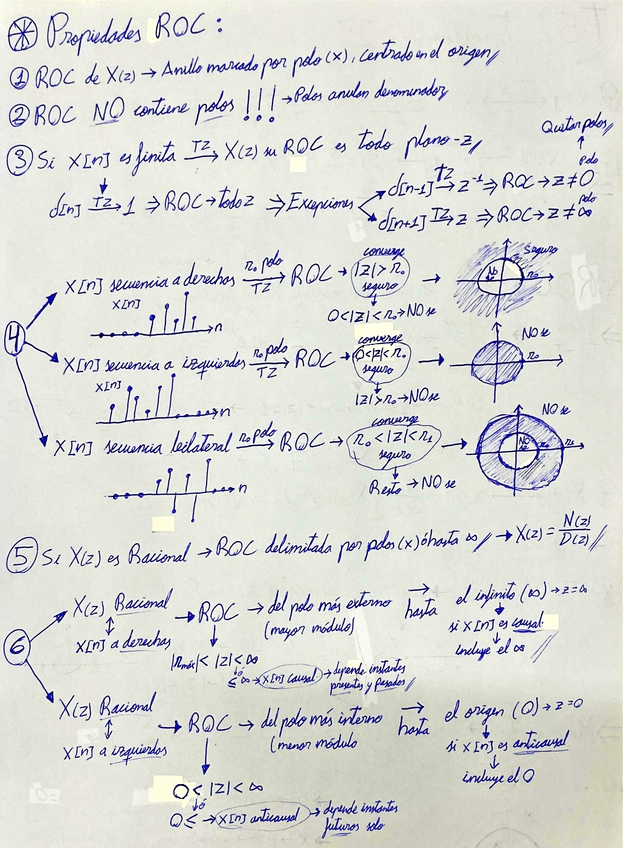 ⊛ Propiedades ROC:
① ROC de X(z) → Anillo marcado por polo (x), centrado en el origen //
② ROC NO contiene polos !!! → Polos anulan denominador //
Quitar polos //
③ Si X[n] es finita TZ→ X(z) su ROC es todo plano-z //
↑ polo
d[n] TZ→ 1 ⇒ ROC → todo z ⇒ Excepciones
d[n-1] TZ→ z⁻¹ ⇒ ROC → z ≠ 0
polo
d[n+1] TZ→ z ⇒ ROC → z ≠ ∞
④
X[n] secuencia a derechas r₀ polo TZ→ ROC → converge |z| > r₀ seguro →
Seguro
No
r₀
X[n]
n
0<|z|<r₀ → NO se
X[n] secuencia a izquierdas r₀ polo TZ→ ROC → converge 0<|z|<r₀ seguro →
NO se
r₀
X[n]
n
|z|>r₀ → NO se
X[n] secuencia bilateral r₀ polo → ROC → converge r₀<|z|<r₁ seguro →
NO se
NO se
r₀
r₁
n
Resto → NO se
⑤ Si X(z) es Racional → ROC delimitada por polos (x) ó hasta ∞ // → X(z) = N(z)/D(z) //
⑥
X(z) Racional ↕ X[n] a derechas
→ ROC → del polo más externo (mayor módulo) → hasta el infinito (∞) → z=∞
si X[n] es causal
incluye el ∞ //
|rmáx| < |z| < ∞
ó
≤ ∞ → X[n] causal → depende instantes
presentes y pasados //
X(z) Racional ↕ X[n] a izquierdas
→ ROC → del polo más interno (menor módulo → hasta el origen (0) → z=0
si X[n] es anticausal
incluye el 0
0 < |z| < ∞
ó
0 ≤ → X[n] anticausal → depende instantes
futuros solo